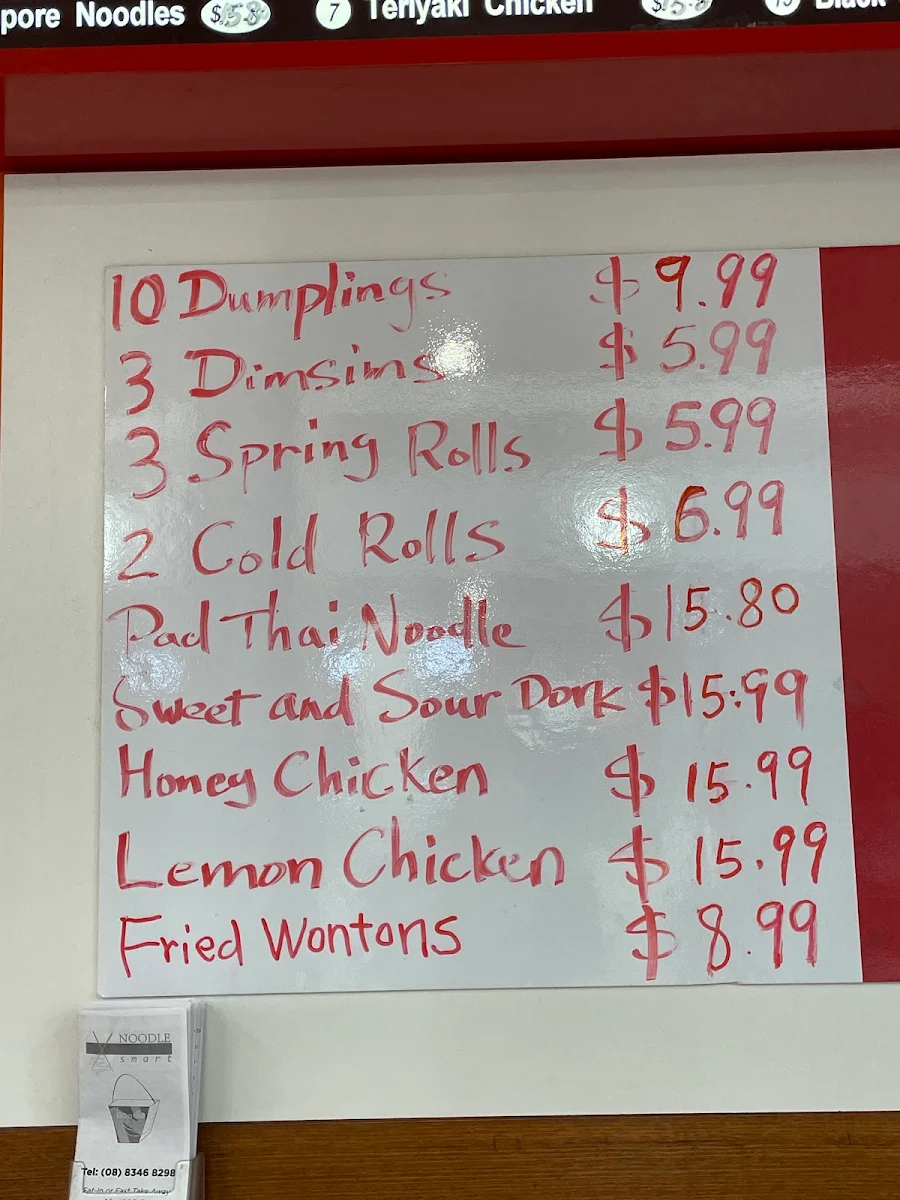 pore Noodles $15.8 7 Teriyaki Chicken $15.8 Black
10 Dumplings $9.99
3 Dimsims $5.99
3 Spring Rolls $5.99
2 Cold Rolls $6.99
Pad Thai Noodle $15.80
Sweet and Sour Pork $15.99
Honey Chicken $15.99
Lemon Chicken $15.99
Fried Wontons $8.99
NOODLE
smart
Tel: (08) 8346 8298
Eat-In or Fast Take Away